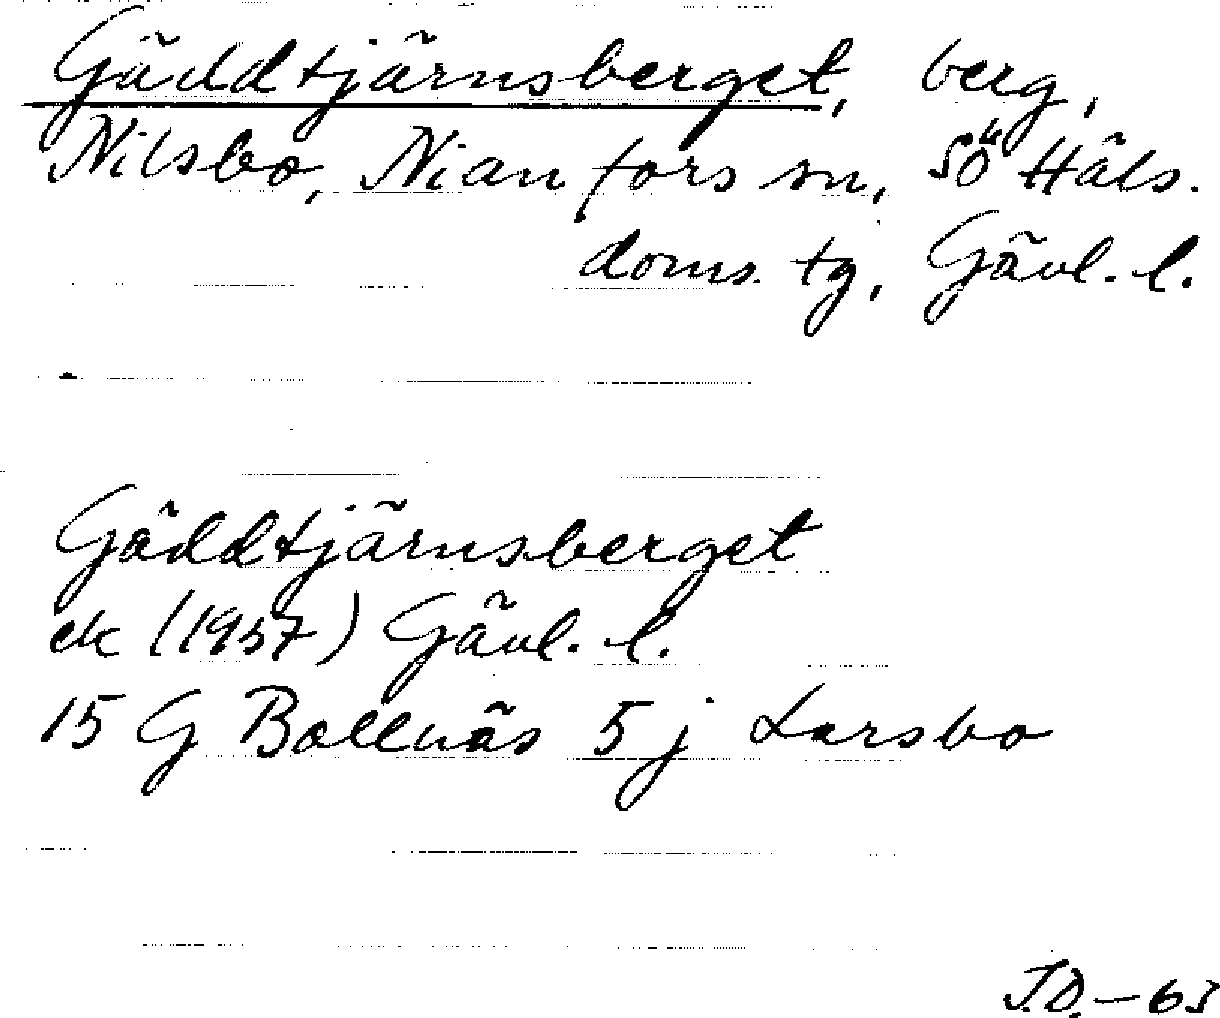 Gäddtjärnsberget, berg,
Nilsbo, Nianfors sn, SÖ Häls.
doms. tg, Gävl. l.
Gäddtjärnsberget
ek (1957) Gävl. l.
15 G Bollnäs 5 j Larsbo
J.D. – 63